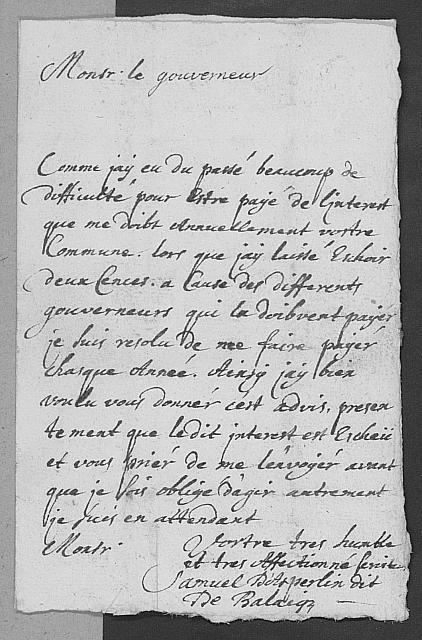 Monsr. le gouverneur
Comme jaÿ eu du passé beaucoup de
difficulté pour Estre payé de l'interest
que me doibt Annuellement vostre
Commune. lors que jaÿ laissé Eschoir
deux Cences. a Cause des differents
gouverneurs qui la doibvent payér
je suis resolu de me faire payér
chasque Année. Ainsÿ jaÿ bien
voulu vous donnér cést advis, presen
tement que ledit interest est Escheü
et vous priér de me l'envoyér avant
que je sois oblige d'agir autrement
je suis en attendant
Monsr.
Vostre tres humble
et tres Affectionne
Samuel D'Asperlin dit
De